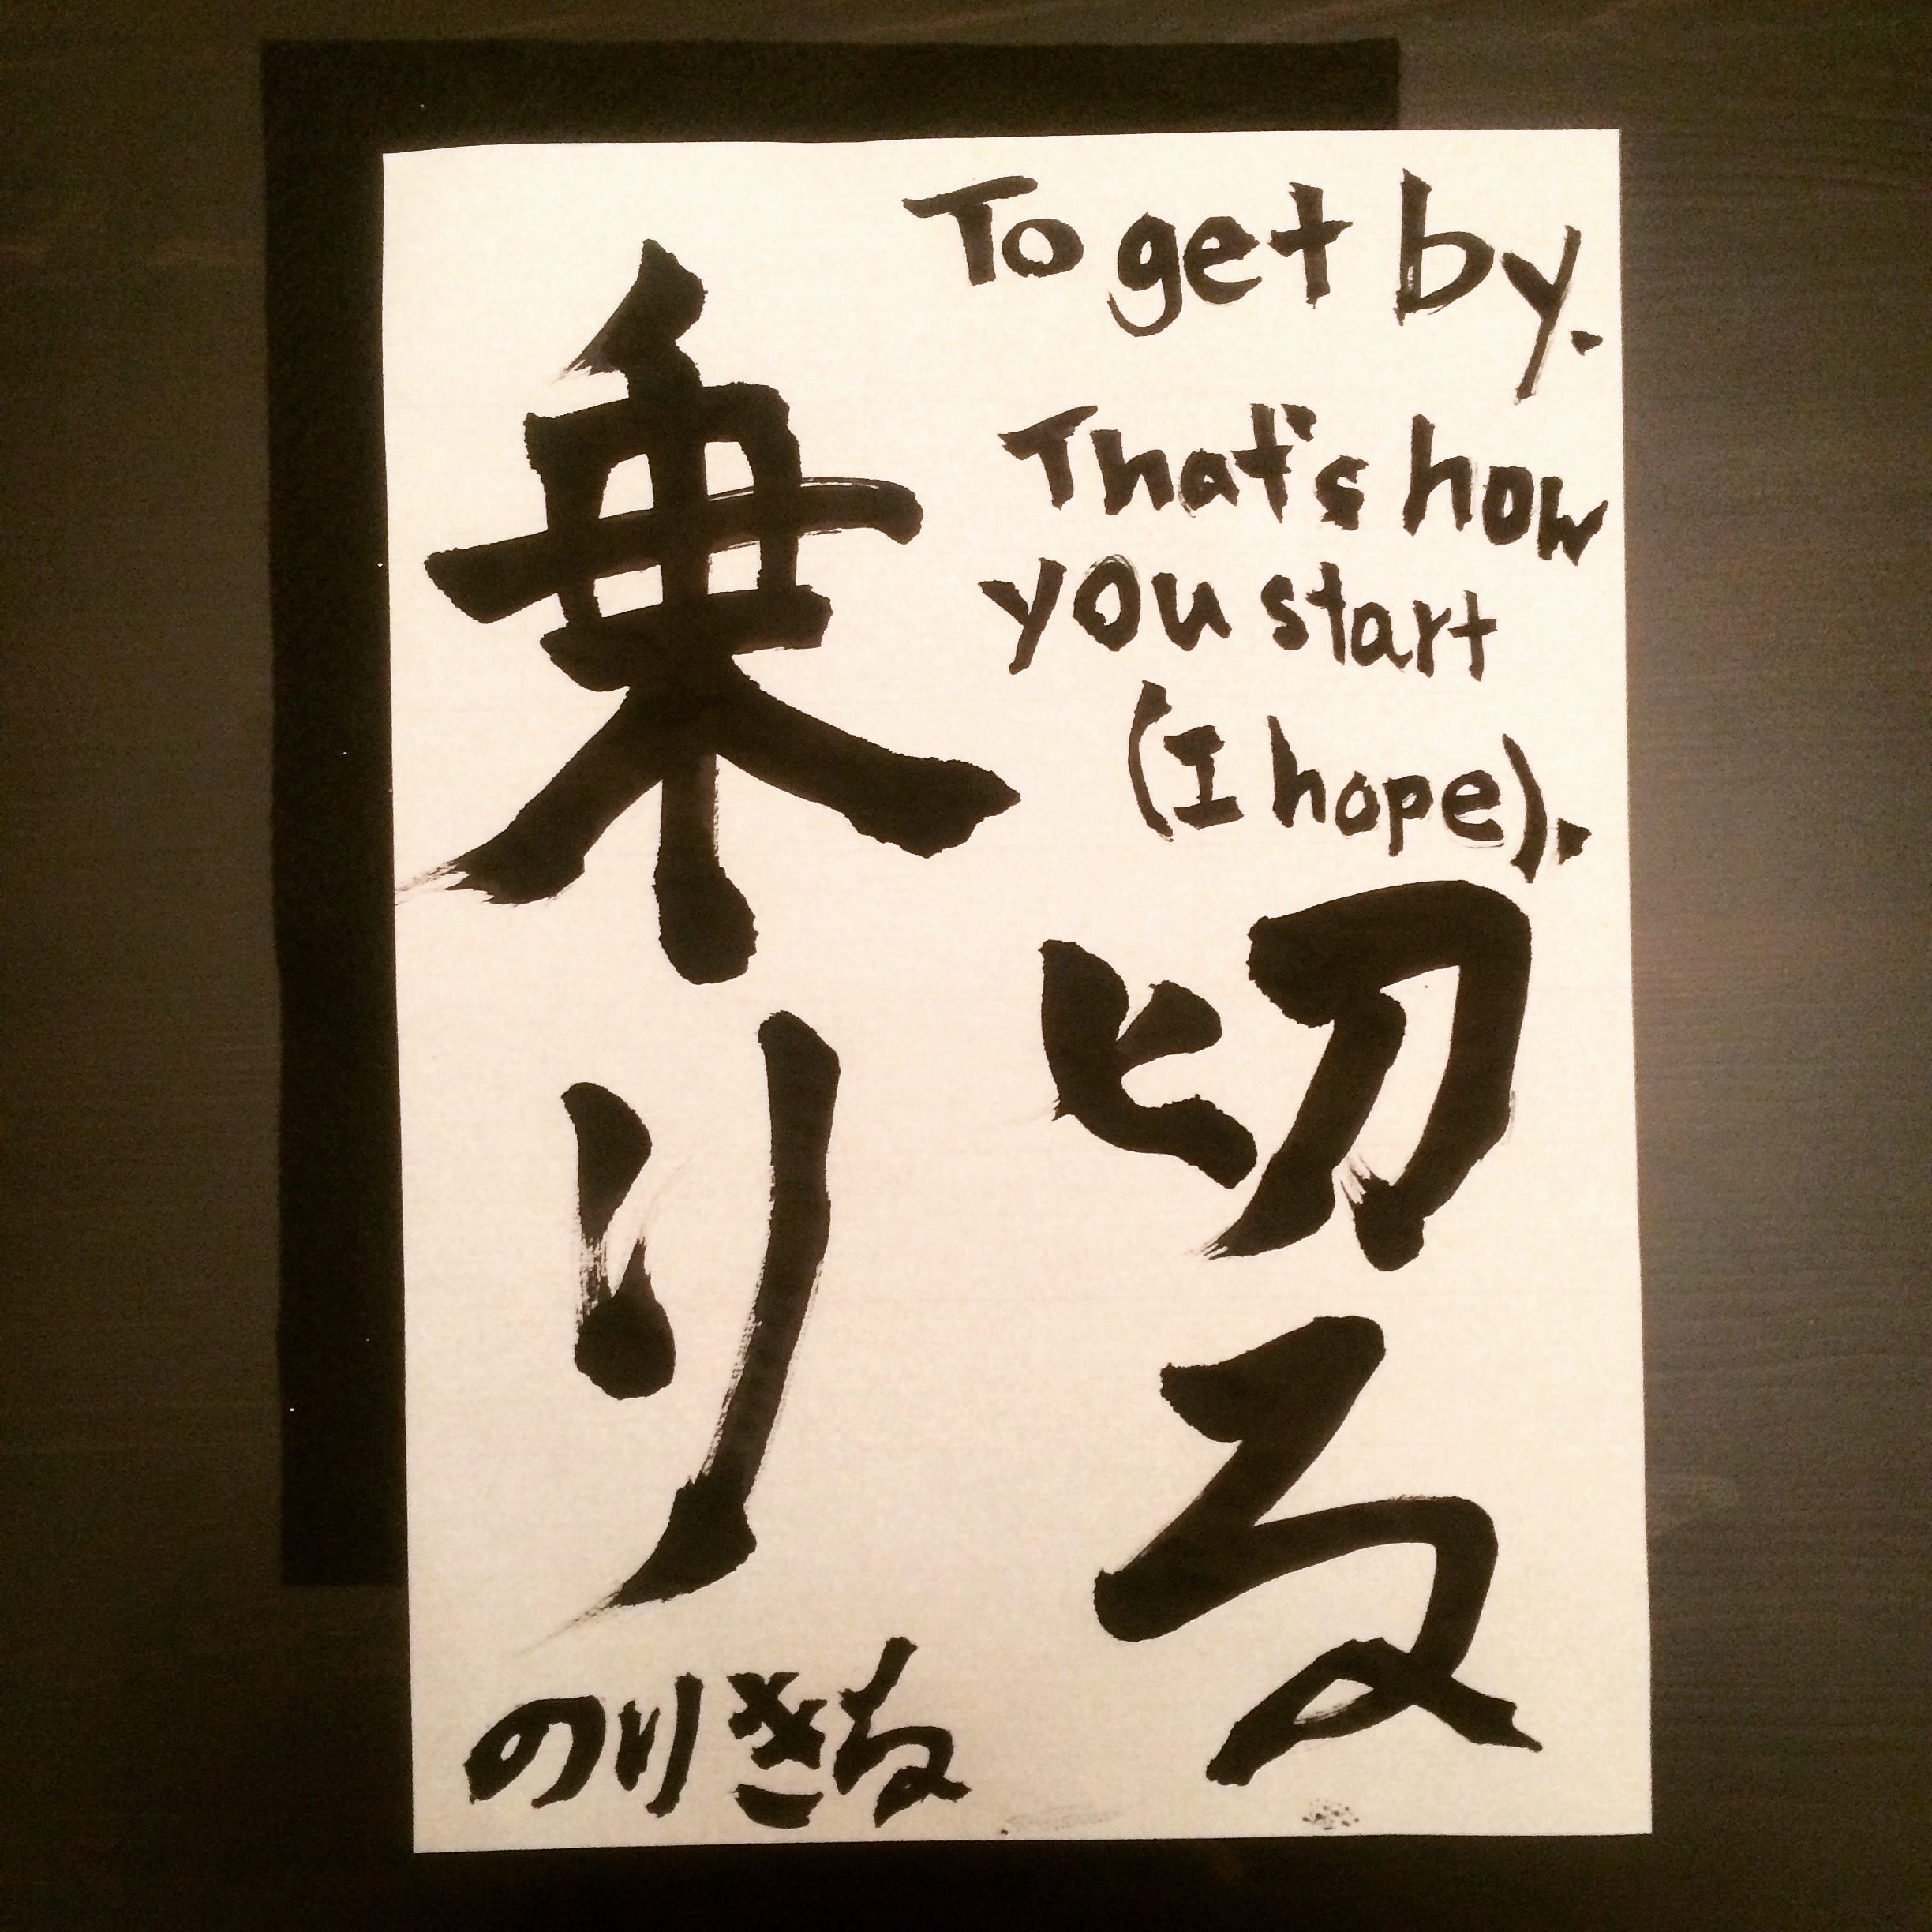 To get by.
That's how
you start
(I hope).
乗り
切る
のりきる